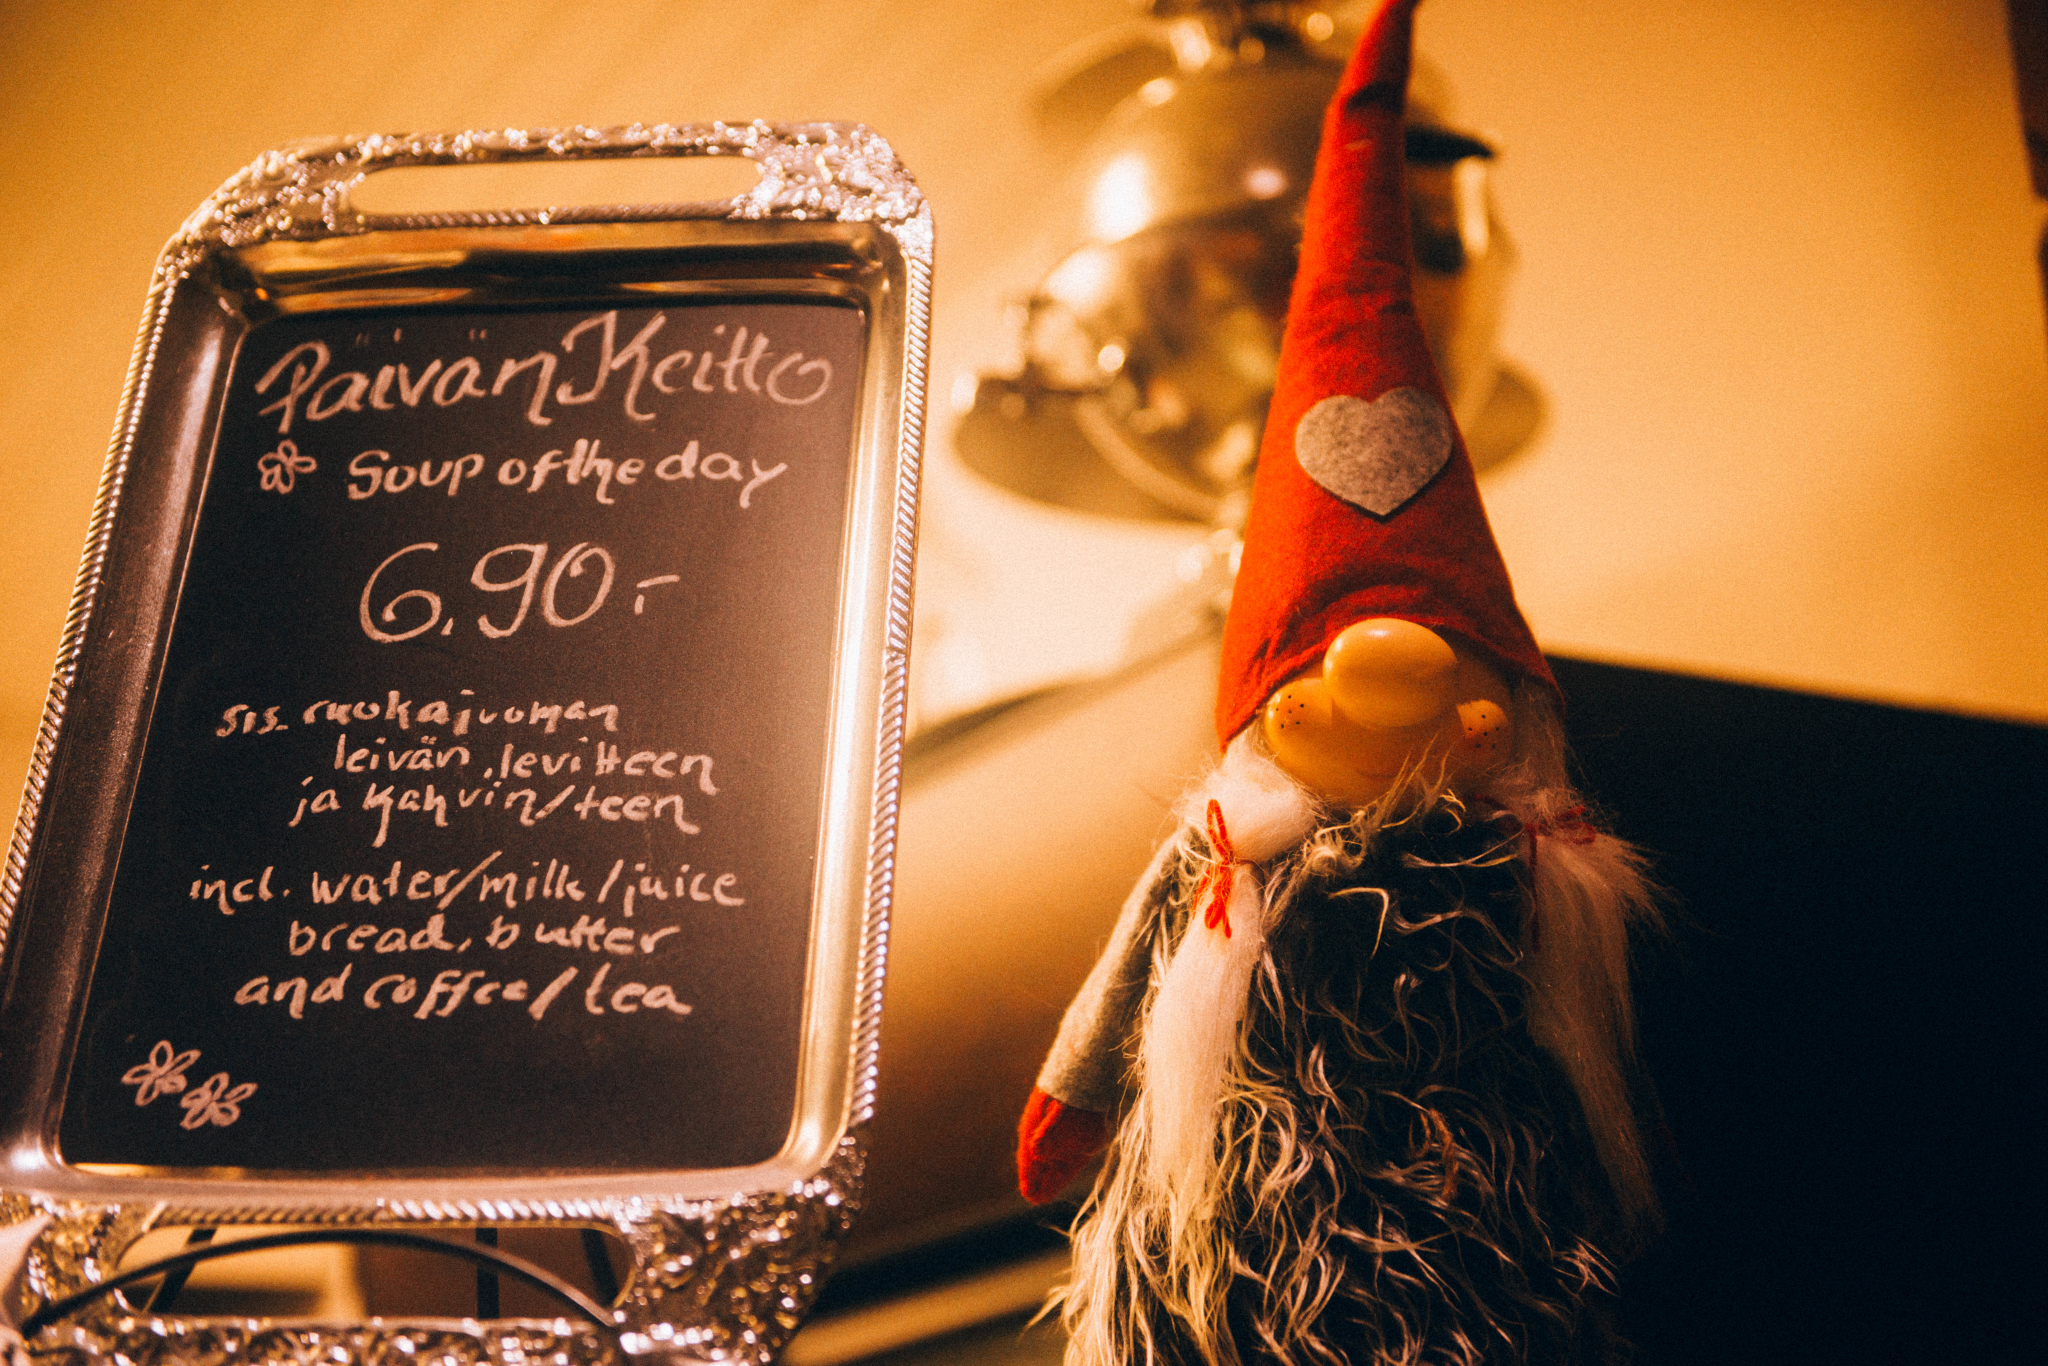 Päivän Keitto
Soup of the day
6,90.-
sis. ruokajuoman
leivän, levitteen
ja kahvin/teen
incl. water/milk/juice
bread, butter
and coffee/tea